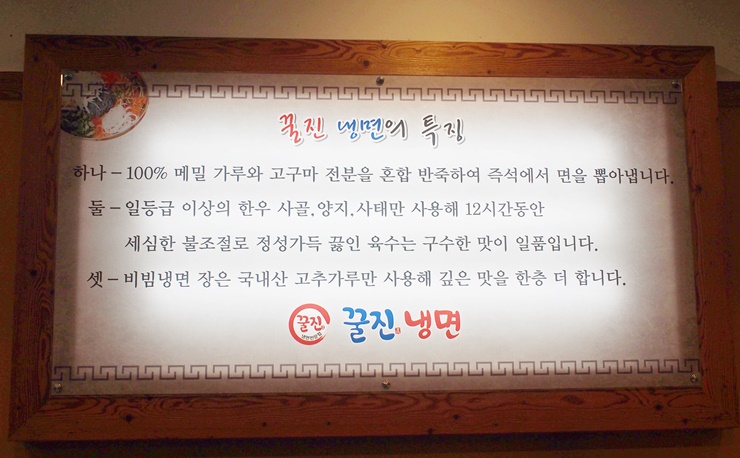 꿀진 냉면의 특징
하나 – 100% 메밀 가루와 고구마 전분을 혼합 반죽하여 즉석에서 면을 뽑아냅니다.
둘 – 일등급 이상의 한우 사골,양지,사태만 사용해 12시간동안
세심한 불조절로 정성가득 끓인 육수는 구수한 맛이 일품입니다.
셋 – 비빔냉면 장은 국내산 고추가루만 사용해 깊은 맛을 한층 더 합니다.
꿀진 꿀진 냉면